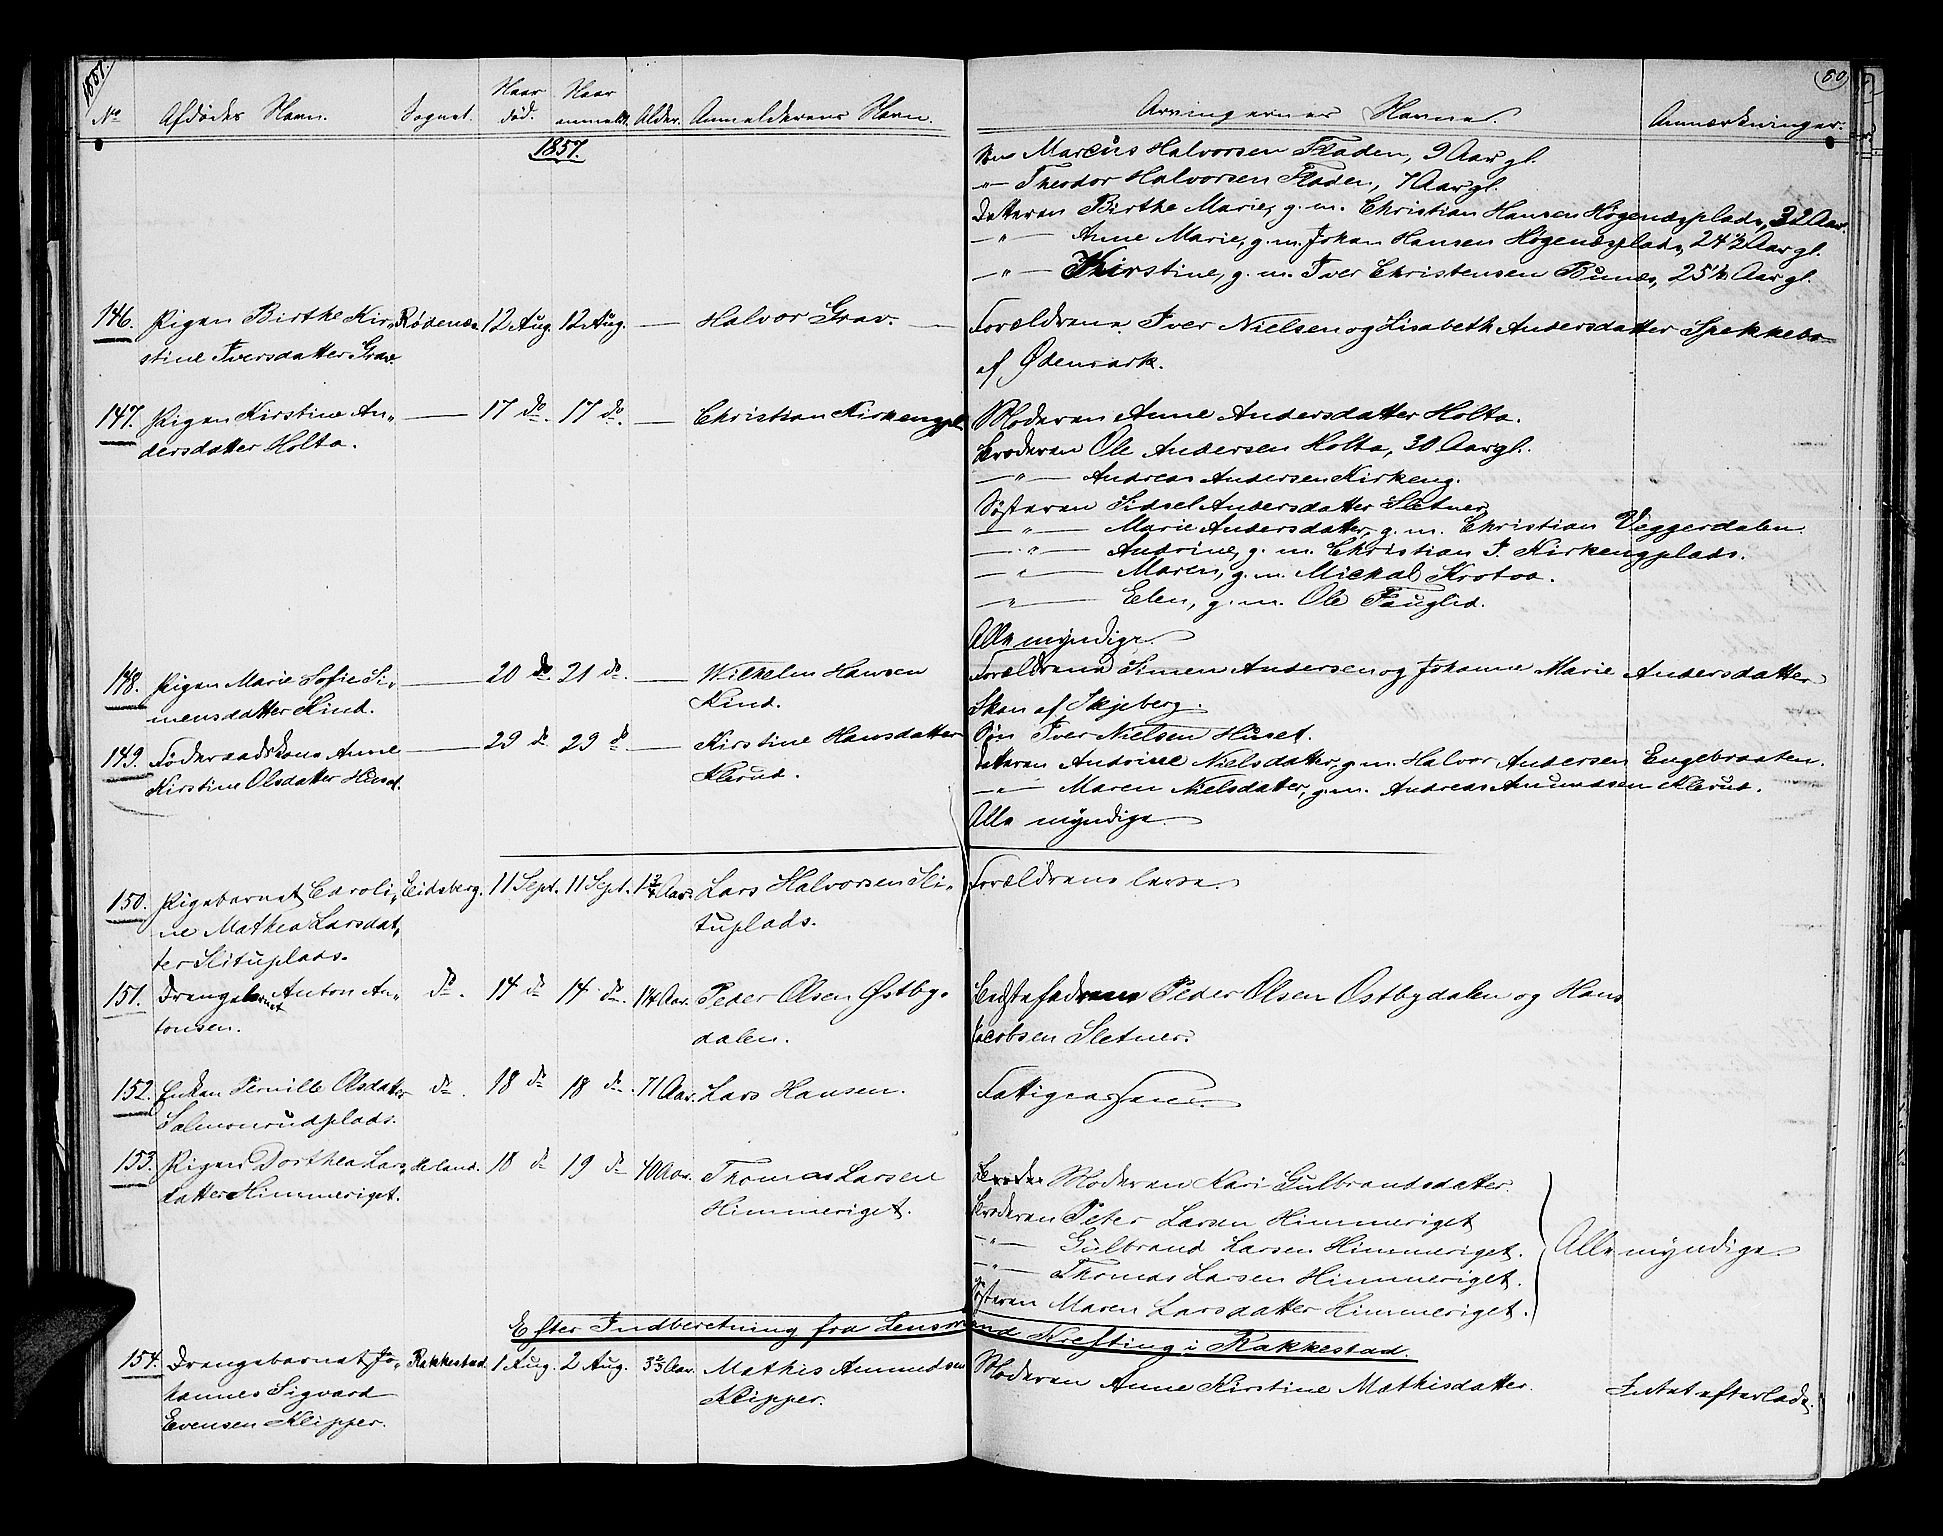 1857.
60
No Afdødes Navn. Sognet. Naar død. Naar anmeldt. Alder. Anmelderens Navn. Arvingernes Navne. Anmærkninger.
1857.
Marcus Halvorsen Fladen, 9 Aar gl.
—"— Theodor Halvorsen Fladen, 7 Aar gl.
Datteren Birthe Marie, g. m. Christian Hansen Høgenæsplads, 32 Aar.
—"— Anne Marie, g. m. Johan Hansen Høgenæsplads, 24 1/2 Aar gl.
—"— Kirstine, g. m. Iver Christensen Bunæs, 25 1/2 Aar gl.
146. Pigen Birthe Kir- Rødenæs 12 Aug. 12 Aug. — Halvor Grav. — Forældrene Iver Nielsen og Lisabeth Andersdatter Spekkebo
stine Iversdatter Grav. af Ødemark.
147. Pigen Kirstine An- — 17 do. 17 do. — Christian Kirkengpl. Moderen Anne Andersdatter Holta.
dersdatter Holta. Broderen Ole Andersen Holta, 30 Aar gl.
—"— Andreas Andersen Kirkeng.
Søsteren Sidsel Andersdatter Sletner
—"— Marie Andersdatter, g. m. Christian Veggerdalen.
—"— Andrine, g. m. Christian I. Kirkengplads.
—"— Maren, g. m. Mickal Krotoa.
—"— Elen, g. m. Ole Fauglid.
Alle myndige.
148. Pigen Marie Sofie Si- — 20 do. 21 do. — Wilhelm Hansen Forældrene Simen Andersen og Johanne Marie Andersdatter
mensdatter Kind. Kind. af Skjeberg.
149. Føderaadskone Anne — 29 do 29 do — Kirstine Hansdatter Søn Iver Nielsen Huset.
Kirstine Olsdatter Huset. Klerud. Datteren Andrine Nielsdatter, g. m. Halvor Andersen Engebraaten.
—"— Maren Nielsdatter, g. m. Andreas Amundsen Klerud.
Alle myndige.
150. Pigebarnet Caroli- Eidsberg. 11 Sept. 11 Sept. 1 3/4 Aar. Lars Halvorsen Sli- Forældrene leve.
ne Mathea Larsdat- tuplads.
ter Slituplads.
151. Drengebarnet Anton An- do. 14 do 14 do. 14 Aar. Peder Olsen Østby- Bedstefædrene Peder Olsen Østbydalen og Hans
tonsen. dalen. Jacobsen Sletner.
152. Enken Pernille Olsdatter do. 18 do 18 do. 71 Aar. Lars Hansen. Fattigvæsenet.
Salmonrudplads.
153. Pigen Dorthea Lars- Høland. 18 do 19 do 40 Aar. Thomas Larsen Moderen Kari Gulbrandsdatter.
datter Himmeriget. Himmeriget. Broderen Peter Larsen Himmeriget
—"— Gulbrand Larsen Himmeriget. Alle myndige
—"— Thomas Larsen Himmeriget.
Søsteren Maren Larsdatter Himmeriget.
Efter Indberetning fra Lensmand Krefting i Rakkestad.
154. Drengebarnet Jo- Rakkestad. 1 Aug. 2 Aug. 3 2/3 Aar. Mathis Amundsen Moderen Anne Kirstine Mathisdatter. Intet efterladt.
hannes Sigvard Klipper.
Evensen Klipper.